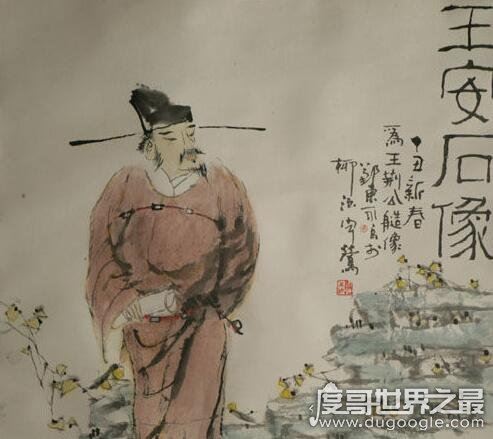 王安石像
丁丑新春
为王荆公造像
鄭東
柳浪
度哥世界之最
www.dugoogle.com